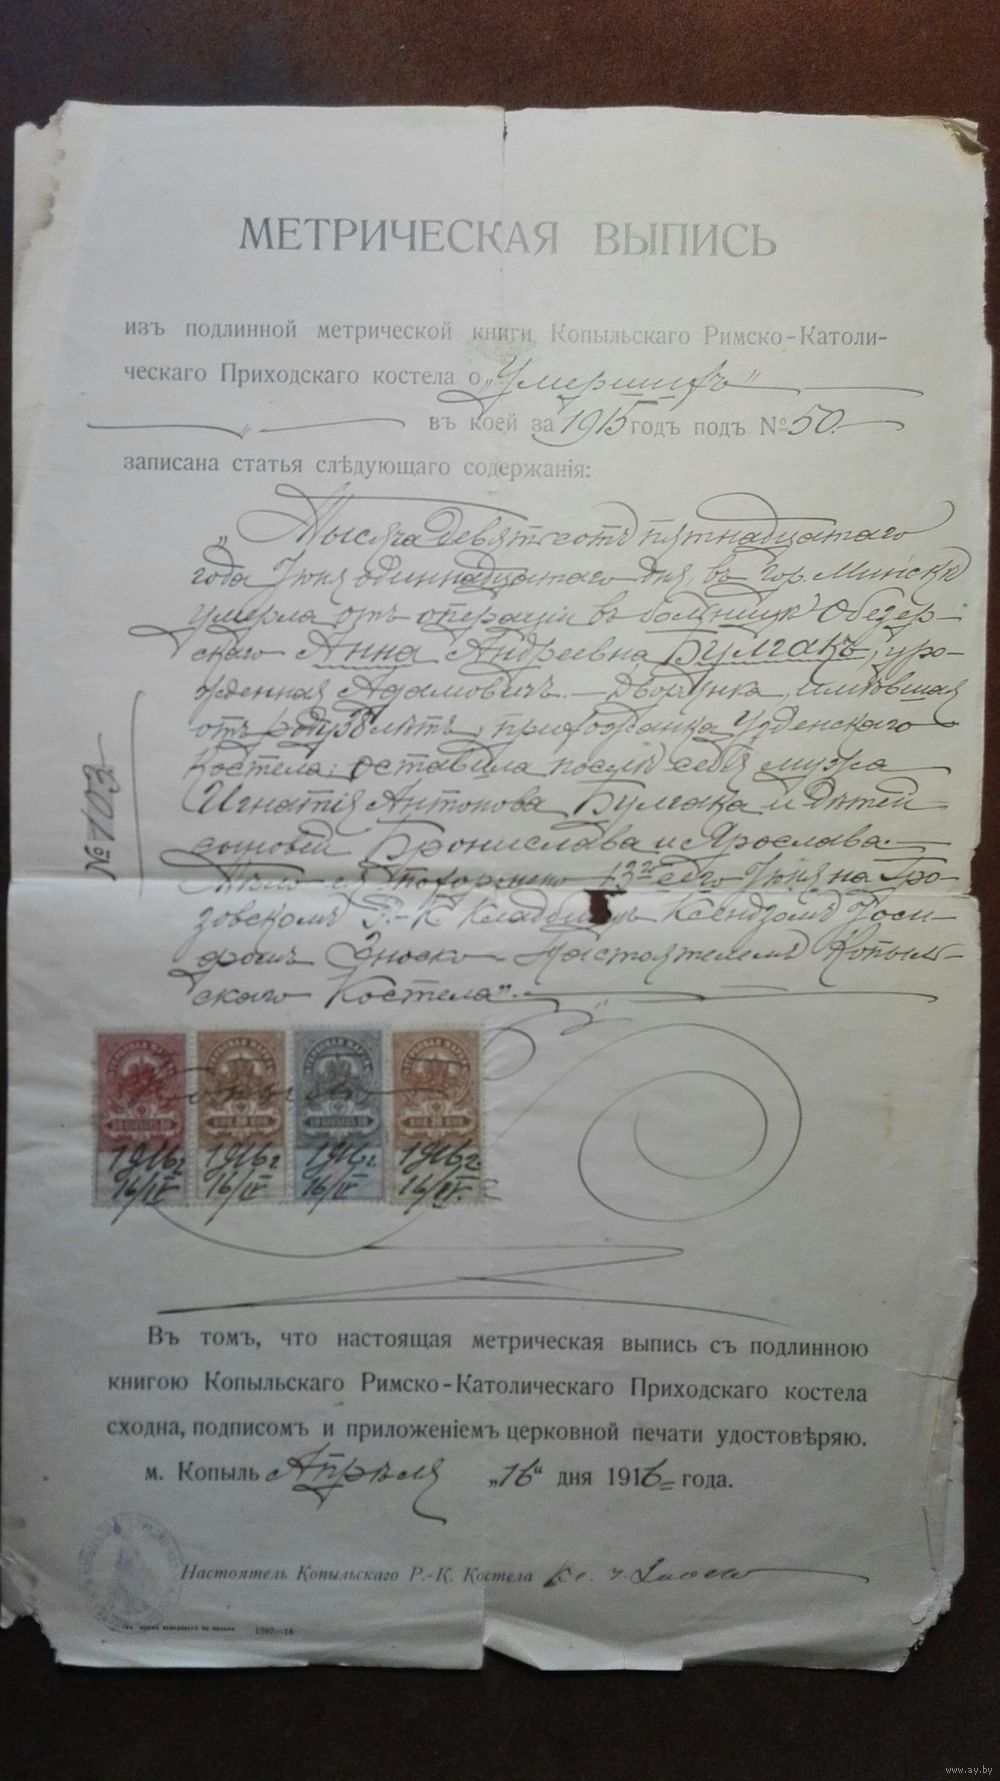 МЕТРИЧЕСКАЯ ВЫПИСЬ
изъ подлинной метрической книги Копыльскаго Римско-Католи-
ческаго Приходскаго костела о „Умершихъ"
въ коей за 1915 годъ подъ № 50.
записана статья слѣдующаго содержанія:
„Тысяча девятьсотъ пятнадцатаго
года Іюня одиннадцатаго дня, въ гор. Минскѣ
умерла отъ операціи въ больницѣ
скаго Анна Андреевна Булгакъ, уро-
жденная Адамовичъ. — Дворянка, имѣвшая
отъ роду лѣтъ, прихожанка Узденскаго
Костела; оставила послѣ себя мужа
Игнатія Антонова Булгака и дѣтей
сыновей Бронислава и Ярослава. —
Тѣло ея похоронено 13го сего Іюня на Гро-
зовскомъ Р.-К. Кладбищѣ Ксендзомъ Іоси-
фомъ Зноско — Настоятелемъ Копыль-
скаго Костела".
№ 203
ГЕРБОВАЯ МАРКА ГЕРБОВАЯ МАРКА ГЕРБОВАЯ МАРКА ГЕРБОВАЯ МАРКА
Копыль
1916г. 1916г. 1916г. 1916г.
16/IV 16/IV 16/IV 16/IV.
Въ томъ, что настоящая метрическая выпись съ подлинною
книгою Копыльскаго Римско-Католическаго Приходскаго костела
сходна, подписомъ и приложеніемъ церковной печати удостовѣряю.
м. Копыль Апрѣля „16" дня 1916 года.
Настоятель Копыльскаго Р.-К. Костела Кс. І. Зноско
www.ay.by